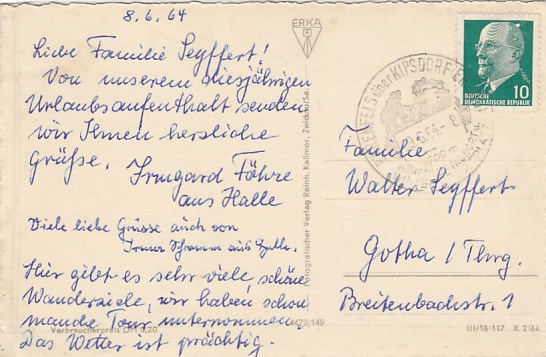 8.6.64
Liebe Familie Seyffert!
Von unserem diesjährigen
Urlaubsaufenthalt senden
wir Ihnen herzliche
Grüße. Irmgard Föhre
aus Halle
Viele liebe Grüsse auch von
Irma Schramm aus Halle.
Hier gibt es sehr viele schöne
Wanderziele, wir haben schon
manche Tour unternommen.
Das Wetter ist prächtig.
Verbraucherpreis DM 0,20
ERKA
Fotografischer Verlag Reinh. Kallmer, Zwickau/Sa.
DEUTSCHE
DEMOKRATISCHE REPUBLIK
10
über KIPSDORF
Familie
Walter Seyffert
Gotha / Thrg.
Breitenbachstr. 1
III/18/117 K 2/64